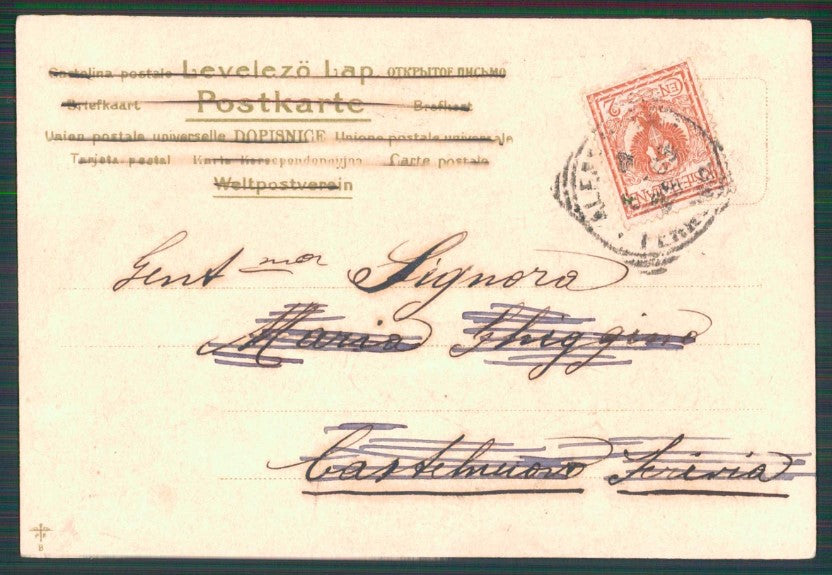 Cartolina postale Levelező Lap ОТКРЫТОЕ ПИСЬМО
Briefkaart Postkarte Brefkort
Union postale universelle DOPISNICE Unione postale universale
Tarjeta postal Karta Korespondencyjna Carte postale
Weltpostverein
CEN. 2
Gent ma Signora
Maria Ghiggino
Castelnuovo Scrivia
B